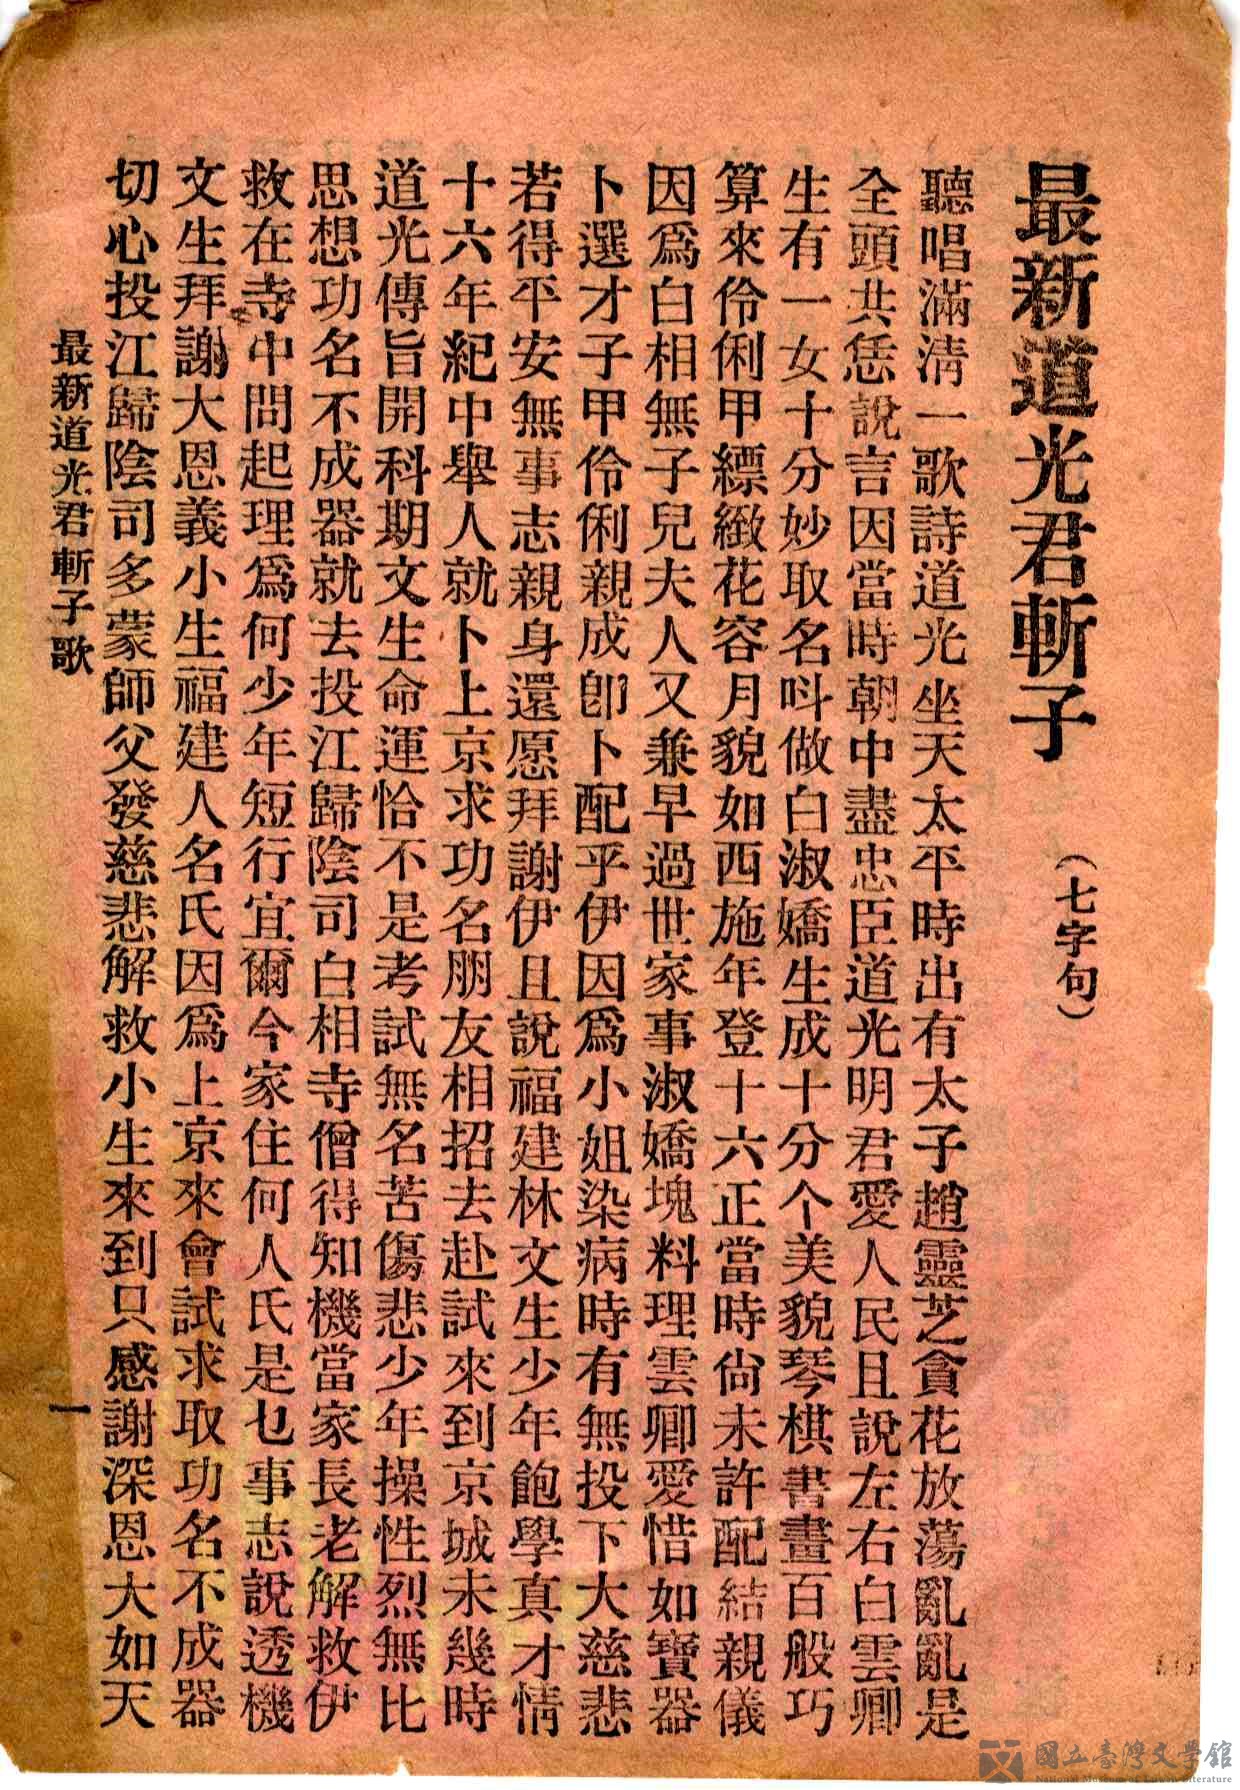 最新道光君斬子
（七字句）
聽唱滿淸一歌詩道光坐天太平時出有太子趙靈芝貪花放蕩亂亂是
全頭共恁說言因當時朝中盡忠臣道光明君愛人民且說左右白雲卿
生有一女十分妙取名呌做白淑嬌生成十分个美貌琴棋書畫百般巧
算來伶俐甲縹緻花容月貌如西施年登十六正當時尙未許配結親儀
因爲白相無子兒夫人又兼早過世家事淑嬌塊料理雲卿愛惜如寶器
卜選才子甲伶俐親成卽卜配乎伊因爲小姐染病時有無投下大慈悲
若得平安無事志親身還愿拜謝伊且說福建林文生少年飽學眞才情
十六年紀中舉人就卜上京求功名朋友相招去赴試來到京城未幾時
道光傳旨開科期文生命運恰不是考試無名苦傷悲少年操性烈無比
思想功名不成器就去投江歸陰司白相寺僧得知機當家長老解救伊
救在寺中問起理爲何少年短行宜爾今家住何人氏是乜事志說透機
文生拜謝大恩義小生福建人名氏因爲上京來會試求取功名不成器
切心投江歸陰司多蒙師父發慈悲解救小生來到只感謝深恩大如天
最新道光君斬子歌
一
國立臺灣文學館
National Museum of Taiwan Literature